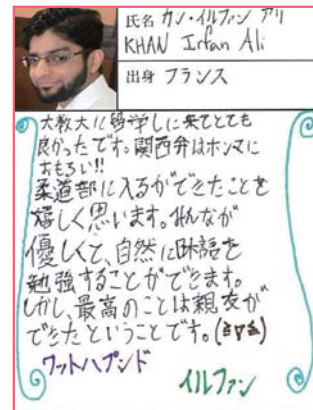 氏名 カン・イルファン アリ
KHAN Irfan Ali
出身 フランス
大教大に留学しに来てとても
良かったです。関西弁はホンマに
おもろい!!
柔道部に入るができたことを
嬉しく思います。みんなが
優しくて、自然に日本語を
勉強することができます。
しかし、最高のことは親友が
できたということです。(≧∇≦)
ワットハプンド
イルファン